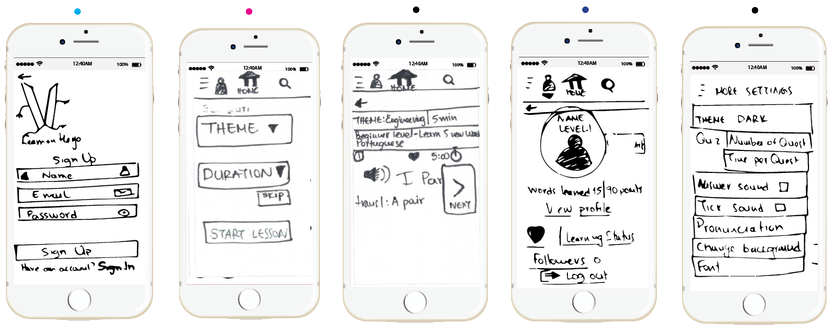 12:40AM 100%
Sign Up
Name
Email
Password
Sign Up
Have an account? Sign In
12:40AM 100%
HOME
THEME
DURATION
SKIP
START LESSON
12:40AM 100%
HOME
THEME: Engineering 5min
Beginner level-Learn 5 new Word
Portuguese
5:00
I Par
transl: A pair
NEXT
12:40AM 100%
HOME
NAME
LEVEL1
Words learned 15/90 points
View profile
Learning Status
Followers 0
Log out
12:40AM 100%
MORE SETTINGS
THEME DARK
Quiz Number of Quest
Time per Quest
Answer sound
Tick Sound
Pronunciation
Change background
Font